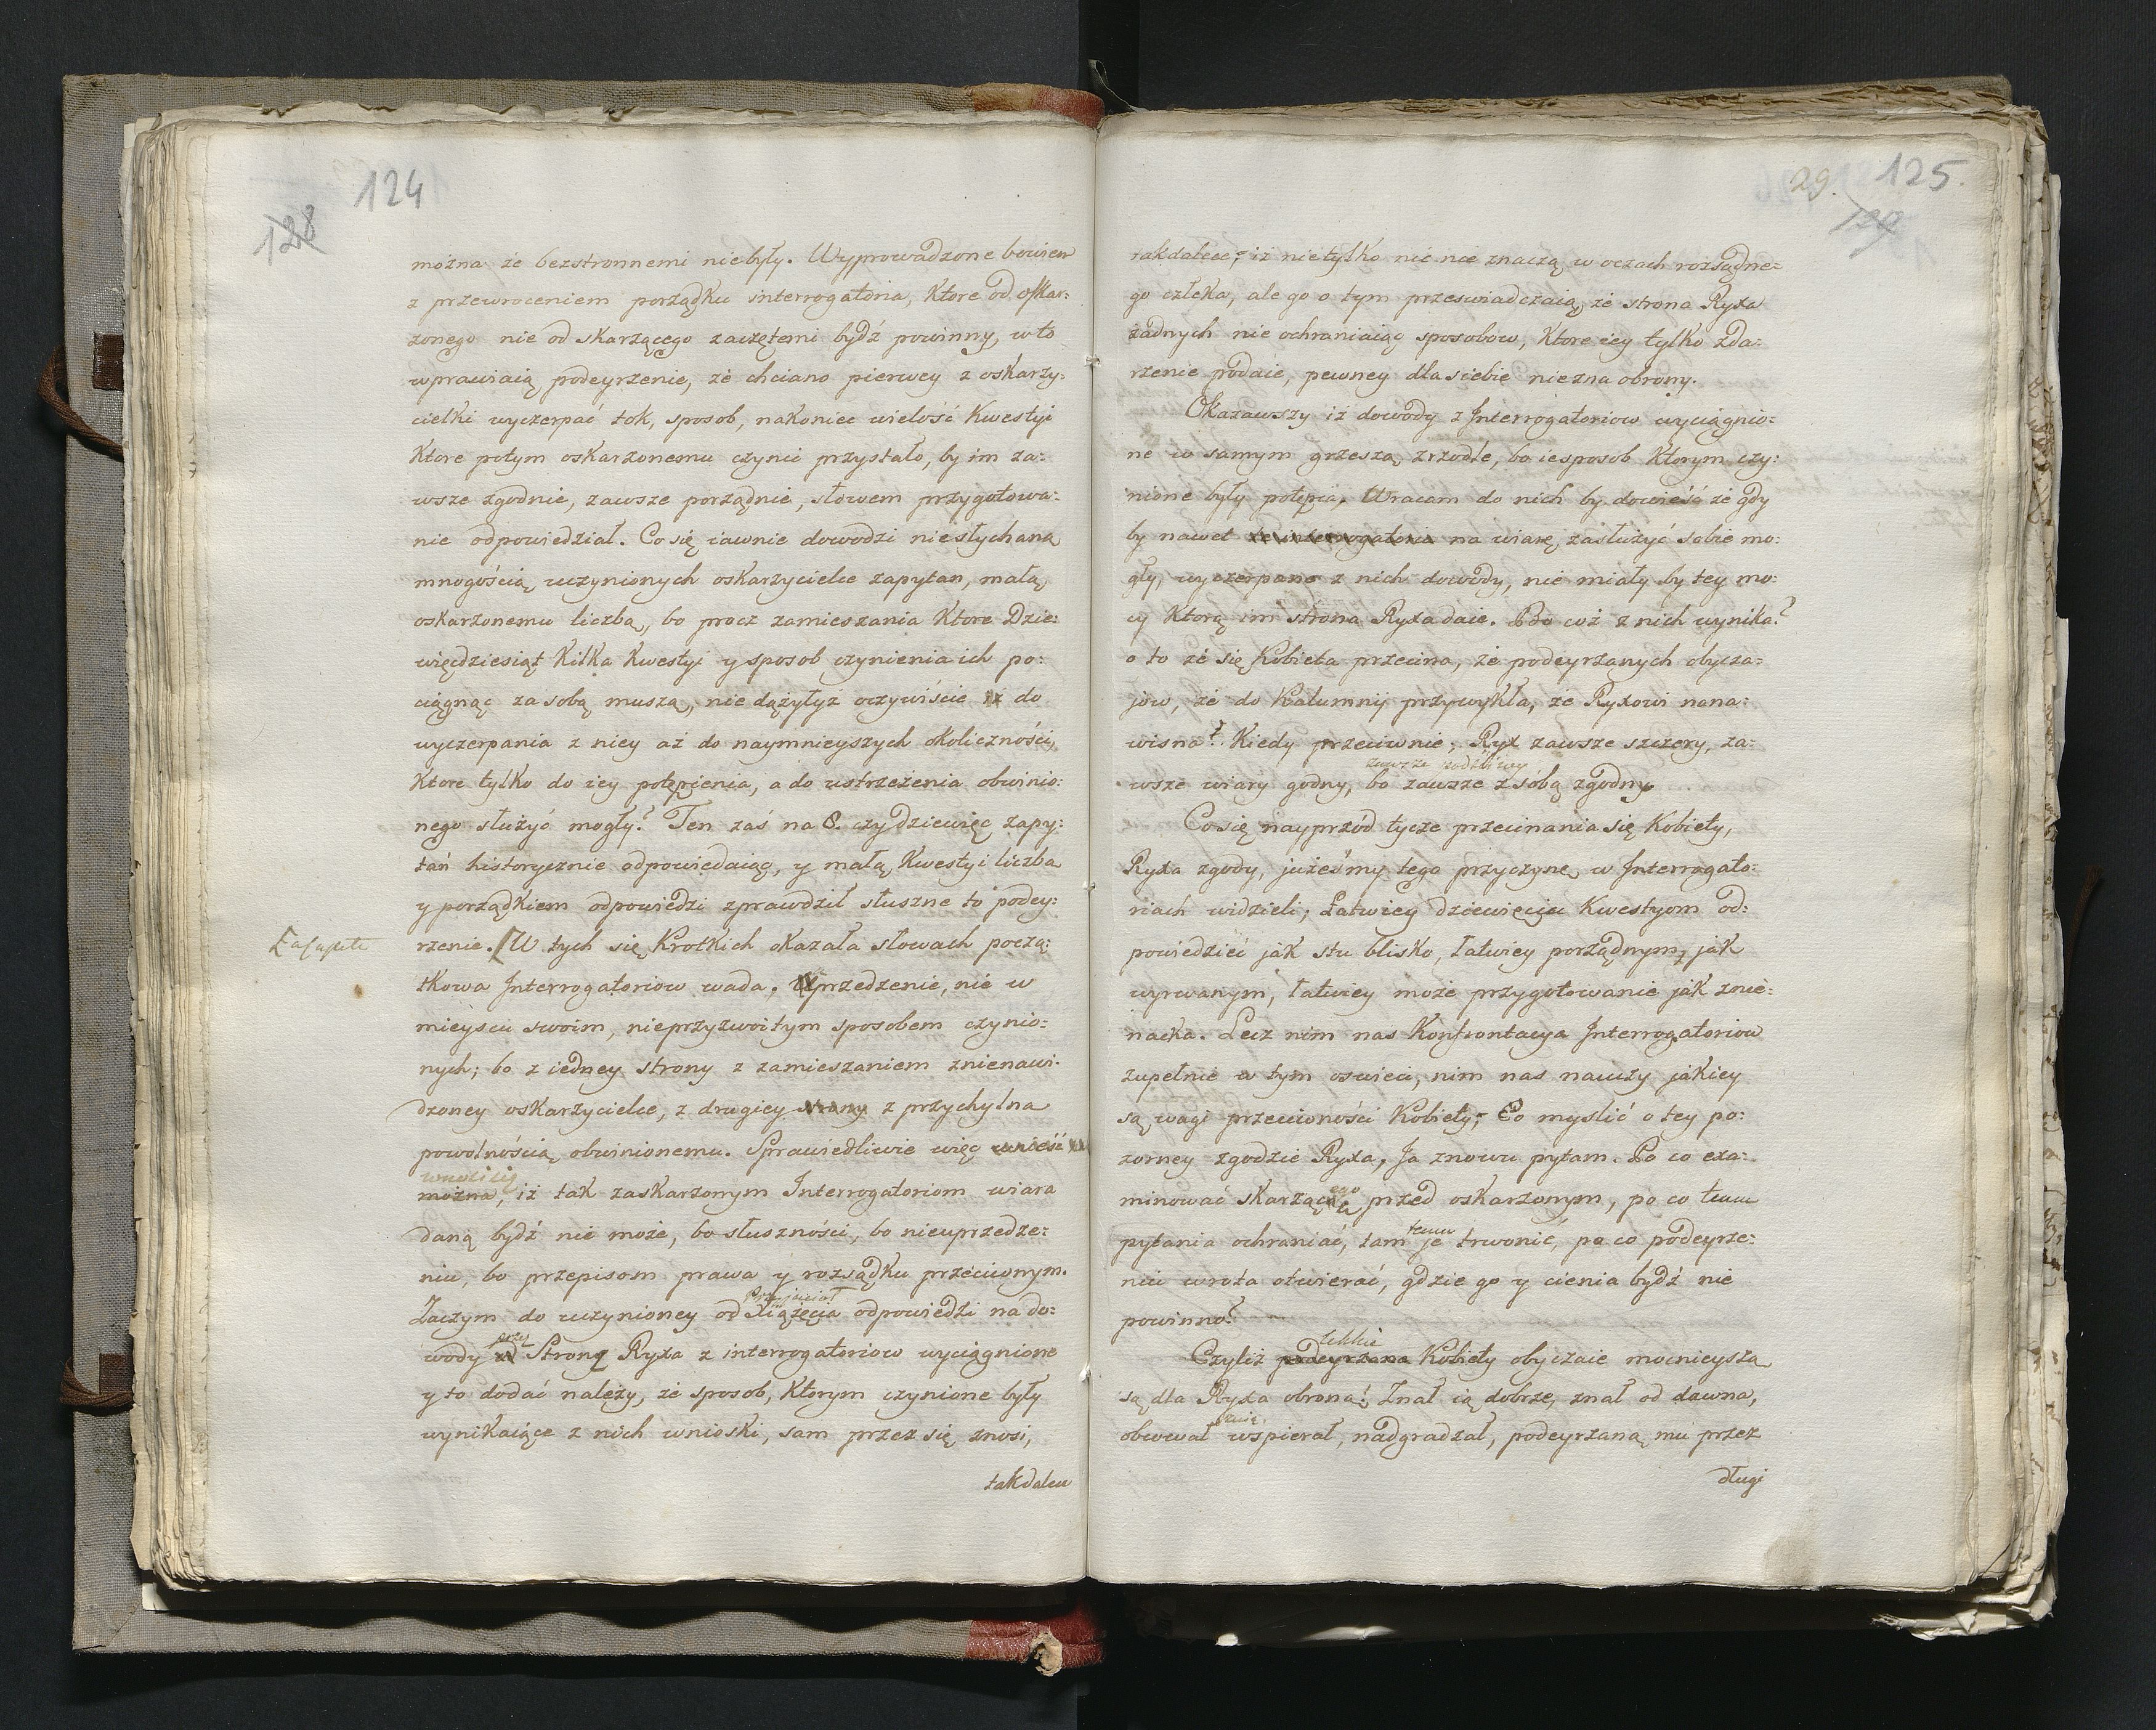 124
128
można że bezstronnemi niebyły. Wyprowadzone bowiem
z przewroceniem porządku interrogatoria, Ktore od oskar:
żonego nie od skarżącego zaczętemi bydź powinny, w to
wprawiaią podeyrzenie, że chciano pierwey z oskarzy:
cielki wyczerpać tok, sposob, nakoniec wielość Kwestyi
Ktore potym oskarzonemu czynić przystało, by im za:
wsze zgodnie, zawsze porządnie, słowem przygotowa:
nie odpowiedział. Co się iawnie dowodzi niesłychaną
mnogością uczynionych oskarzycielce zapytan, małą
oskarzonemu liczbą, bo procz zamieszania Ktore Dzie:
więćdziesiąt Kilka Kwestyi y sposob czynienia ich po:
ciągnąć za sobą muszą, nie dążyłyż oczywiście do
wyczerpania z niey aż do naymnieyszych okoliczności,
Ktore tylko do iey potępienia, a do ustrzeżenia obwinio:
nego służyć mogły? Ten zaś na 8. czy dziewięć zapy:
tań historycznie odpowiedaiąc, y małą Kwestyi liczbą
y porządkiem odpowiedzi zprawdził słuszne to podey:
rzenie. [W tych się Krotkich okazała słowach począ:
tkowa Interrogatoriow wada. Uprzedzenie, nie w
mieyscu swoim, nieprzyzwoitym sposobem czynio:
nych; bo z iedney strony z zamieszaniem znienawi:
dzoney oskarzycielce, z drugiey strony z przychylną
powolnością obwinionemu. Sprawiedliwie więc wnieść
wnosi się
można, iż tak zaskarzonym Interrogatoriom wiara
daną bydź nie może, bo słuszności, bo nieuprzedze:
niu, bo przepisom prawa y rozsądku przeciwnym.
Przyjaciół
Zaczym do uczynioney od Xiążęcia odpowiedzi na do:
przez
wody od Strony Ryxa z interrogatoriow wyciągnione
y to dodać należy, że sposob, Ktorym czynione były
wynikaiące z nich wnioski, sam przez się znosi,
takdalece
29. 125.
takdalece, iż nietylko nic nie znaczą w oczach rozsądne:
go człeka, ale go o tym przeswiadczaią, że strona Ryxa
żadnych nie ochraniaiąc sposobow, Ktore iey tylko zda:
rzenie podaie, pewney dla siebie niezna obrony.
Okazawszy iż dowody z Interrogatoriow wyciągnio:
ne w samym grzeszą zrzodle, bo ie sposob Ktorym czy:
nione były potępia, Wracam do nich by dowieść że gdy
by nawet te interrogatoria na wiarę zasłużyć sobie mo:
gły, wyczerpane z nich dowody, nie miały by tey mo:
cy Ktorą im strona Ryxa daie. Bo coż z nich wynika?
o to że się Kobieta przecina, że podeyrzanych obycza:
jów, że do Kalumnij przywykła, że Ryxowi nena:
wisna? Kiedy przeciwnie, Ryx zawsze szczery, za:
zawsze
wsze wiary godny, bo zawsze z sobą zgodny.
Co się nayprzód tycze przecinania się Kobiety,
Ryxa zgody, jużeśmy tego przyczynę w Interrogato:
riach widzieli; Łatwiey dziewięciu Kwestyom od:
powiedzieć jak stu blisko, łatwiey porządnym, jak
wyrwanym, łatwiey może przygotowanie jak znie:
nacka. Lecz nim nas Konfrontacya Interrogatoriow
zupełnie w tym oswieci, nim nas nauczy jakiey
są wagi przeciwności Kobiety; Co myslić o tey po:
zorney zgodzie Ryxa, Ja znowu pytam. Po co exa:
minować skarżącego przed oskarzonym, po co temu
temu
pytania ochraniać, tam je trwonić, po co podeyrze:
niu wrota otwierać, gdzie go y cienia bydź nie
powinno?
lekkie
Czyliż podeyrzane Kobiety obyczaie mocnieyszą
są dla Ryxa obroną? Znał ią dobrze, znał od dawna,
obcował wspierał, nadgradzał, podeyrzaną mu przez
długi